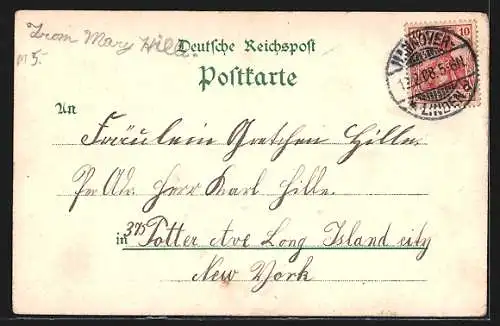 From Mary Hille.
M 5.
Deutsche Reichspost
Postkarte
10
HANNOVER-
08.5-6N
LINDEN
An
Fräulein Gretchen Hille.
Per Adr. Herr Karl Hille.
in 375 Potter Ave Long Island city
New York